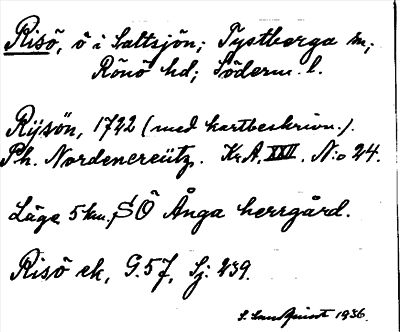 Risö, ö i Saltsjön; Tystberga sn;
Rönö hd; Söderm. l.
Rijsön, 1722 (med kartbeskrivn.).
Ph. Nordencreütz. KrA. XXII. N:o 24.
Läge 5 km. SÖ Ånga herrgård.
Risö ek, G.57, Sj: 239.
S. Sandquist 1936.